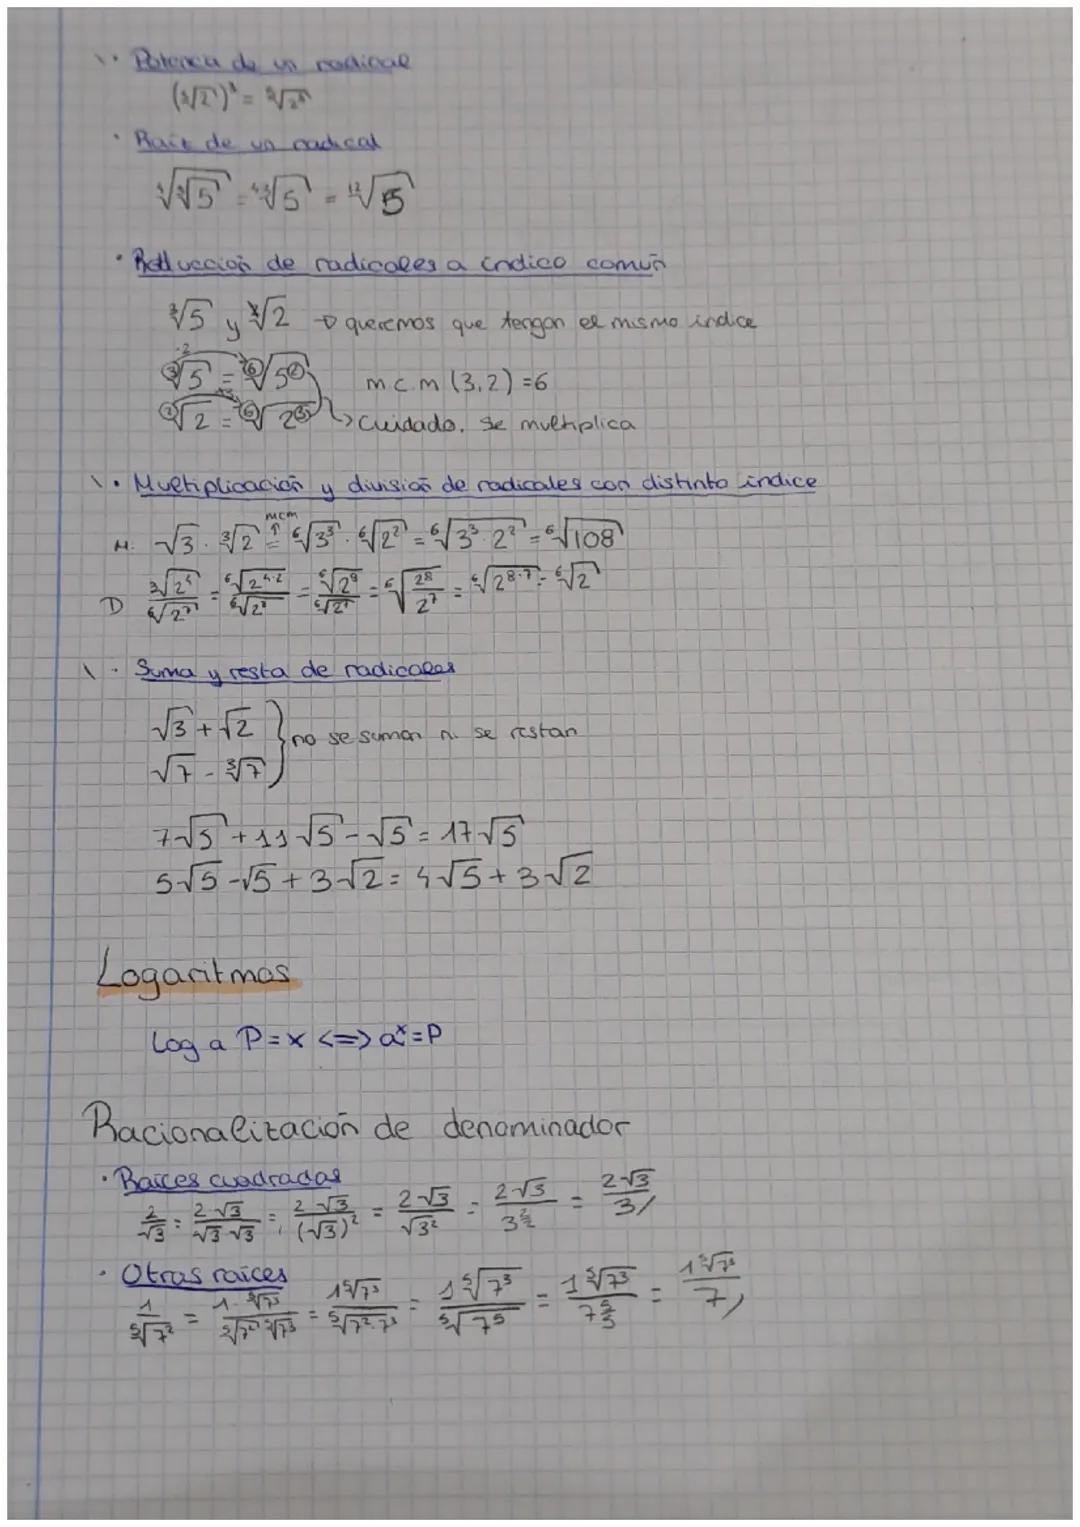 · Potencia de un radical
(∛2)⁴ = ∛2⁴
· Raiz de un radical
⁴√∛5 = ⁴·³√5 = ¹²√5
· Reducción de radicales a indice común
∛5 y √2 → queremos que tengan el mismo indice
∛5 = ⁶√5² m.c.m (3,2) = 6
²√2 = ⁶√2³ ↳ Cuidado. se multiplica
· Multiplicación y división de radicales con distinto indice
mcm
M: √3 · ∛2 = ⁶√3³ · ⁶√2² = ⁶√3³·2² = ⁶√108
D ∛2⁴/⁶√2⁷ = ⁶√2⁴·²/⁶√2⁷ = ⁶√2⁸/⁶√2⁷ = ⁶√(2⁸/2⁷) = ⁶√2⁸⁻⁷ = ⁶√2
· Suma y resta de radicales
√3 + √2
√7 - ∛7 } no se suman ni se restan
7√5 + 11√5 - √5 = 17√5
5√5 - √5 + 3√2 = 4√5 + 3√2
Logaritmos
Log a P = x <=> aˣ = P
Racionalización de denominador
· Raíces cuadradas
2/√3 = 2√3/√3 √3 = 2√3/(√3)² = 2√3/√3² = 2√3/3^(2/2) = 2√3/3
· Otras raices
1/⁵√7² = 1·⁵√7³/⁵√7² ⁵√7³ = 1⁵√7³/⁵√7²·7³ = 1⁵√7³/⁵√7⁵ = 1⁵√7³/7^(5/5) = 1⁵√7³/7